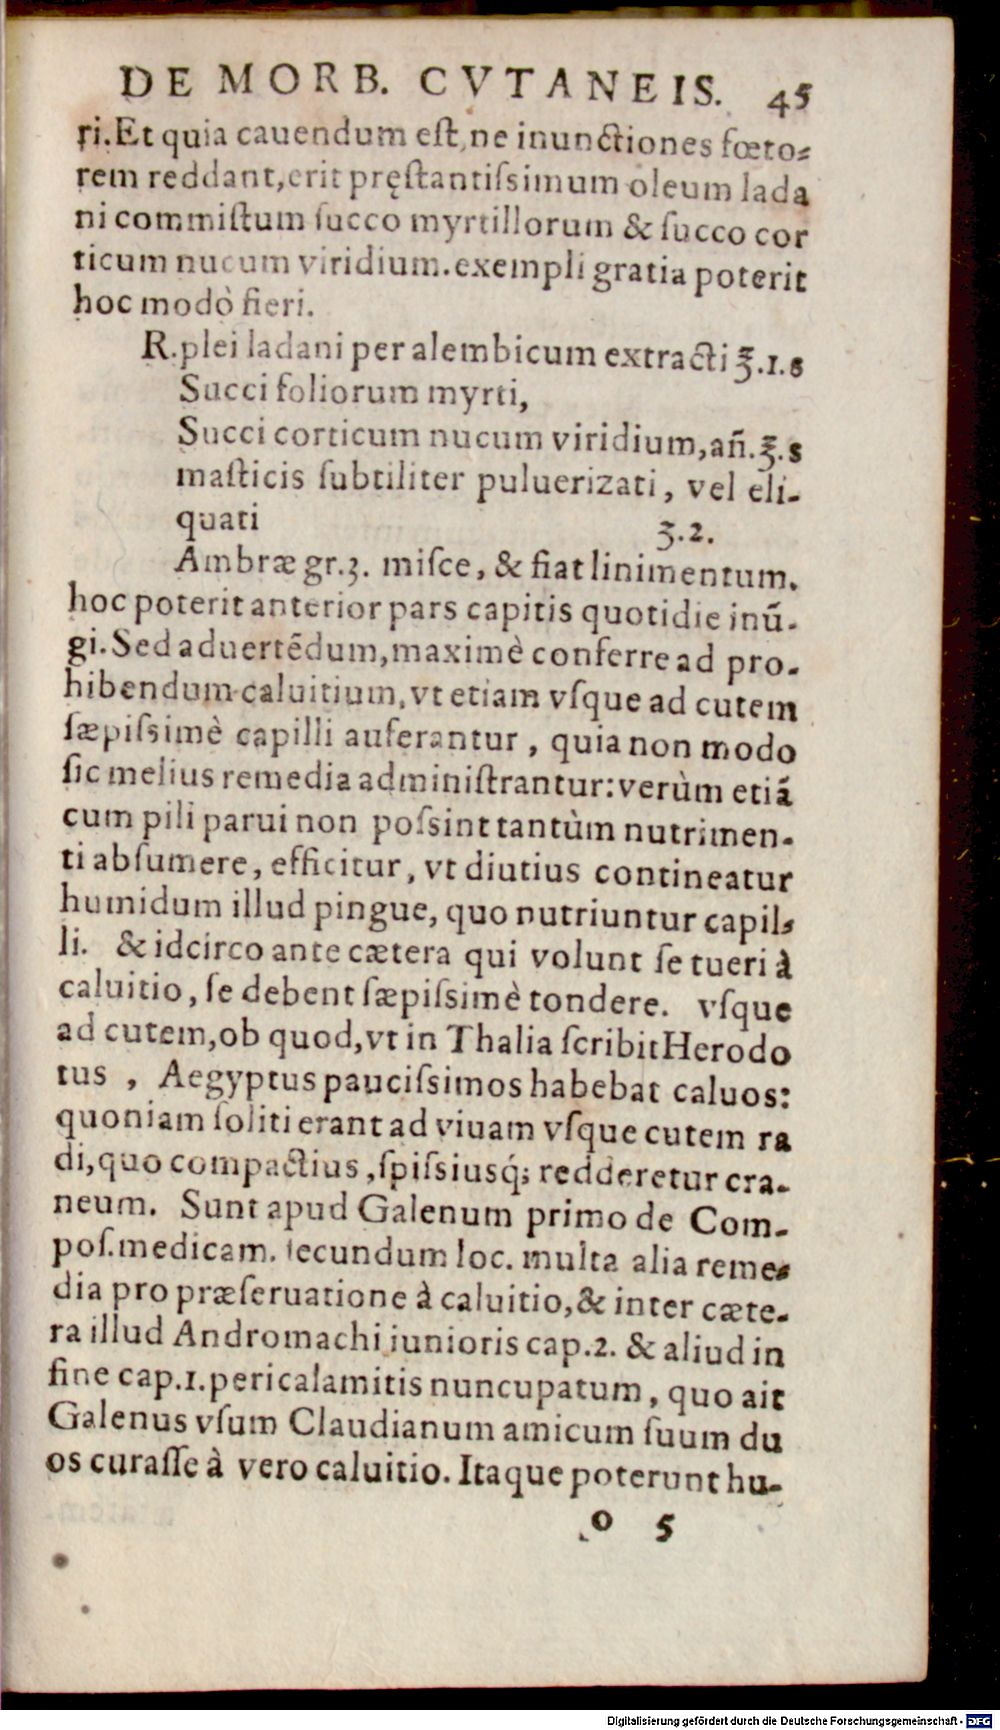 DE MORB. CVTANEIS. 45
ri. Et quia cauendum eſt, ne inunctiones fœto-
rem reddant, erit pręſtantiſsimum oleum lada
ni commiſtum ſucco myrtillorum & ſucco cor
ticum nucum viridium. exempli gratia poterit
hoc modò fieri.
R. plei ladani per alembicum extracti ℥.1.s
Succi foliorum myrti,
Succi corticum nucum viridium, añ.℥.s
maſticis ſubtiliter puluerizati, vel eli-
quati ʒ.2.
Ambræ gr.3. miſce, & fiat linimentum.
hoc poterit anterior pars capitis quotidie inū-
gi. Sed aduertēdum, maximè conferre ad pro-
hibendum caluitium, vt etiam vſque ad cutem
ſæpiſsimè capilli auferantur, quia non modo
ſic melius remedia adminiſtrantur: verùm etiā
cum pili parui non poſsint tantùm nutrimen-
ti abſumere, efficitur, vt diutius contineatur
humidum illud pingue, quo nutriuntur capil-
li. & idcirco ante cætera qui volunt ſe tueri à
caluitio, ſe debent ſæpiſsimè tondere. vſque
ad cutem, ob quod, vt in Thalia ſcribit Herodo
tus , Aegyptus pauciſsimos habebat caluos:
quoniam ſoliti erant ad viuam vſque cutem ra
di, quo compactius, ſpiſsiusq́; redderetur cra-
neum. Sunt apud Galenum primo de Com-
poſ. medicam. ſecundum loc. multa alia reme-
dia pro præſeruatione à caluitio, & inter cæte-
ra illud Andromachi iunioris cap.2. & aliud in
fine cap.1. pericalamitis nuncupatum, quo ait
Galenus vſum Claudianum amicum ſuum du
os curaſſe à vero caluitio. Itaque poterunt hu-
o 5
Digitalisierung gefördert durch die Deutsche Forschungsgemeinschaft - DFG